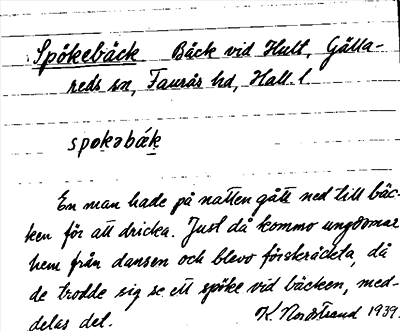 Spökebäck Bäck vid Hult, Gälla-
reds sn, Faurås hd, Hall. l
spøkəbäk
En man hade på natten gått ned till bäc-
ken för att dricka. Just då kommo ungdomar
hem från dansen och blevo förskräckta, då
de trodde sig se ett spöke vid bäcken, med-
delas det. K. Nordstrand 1939.